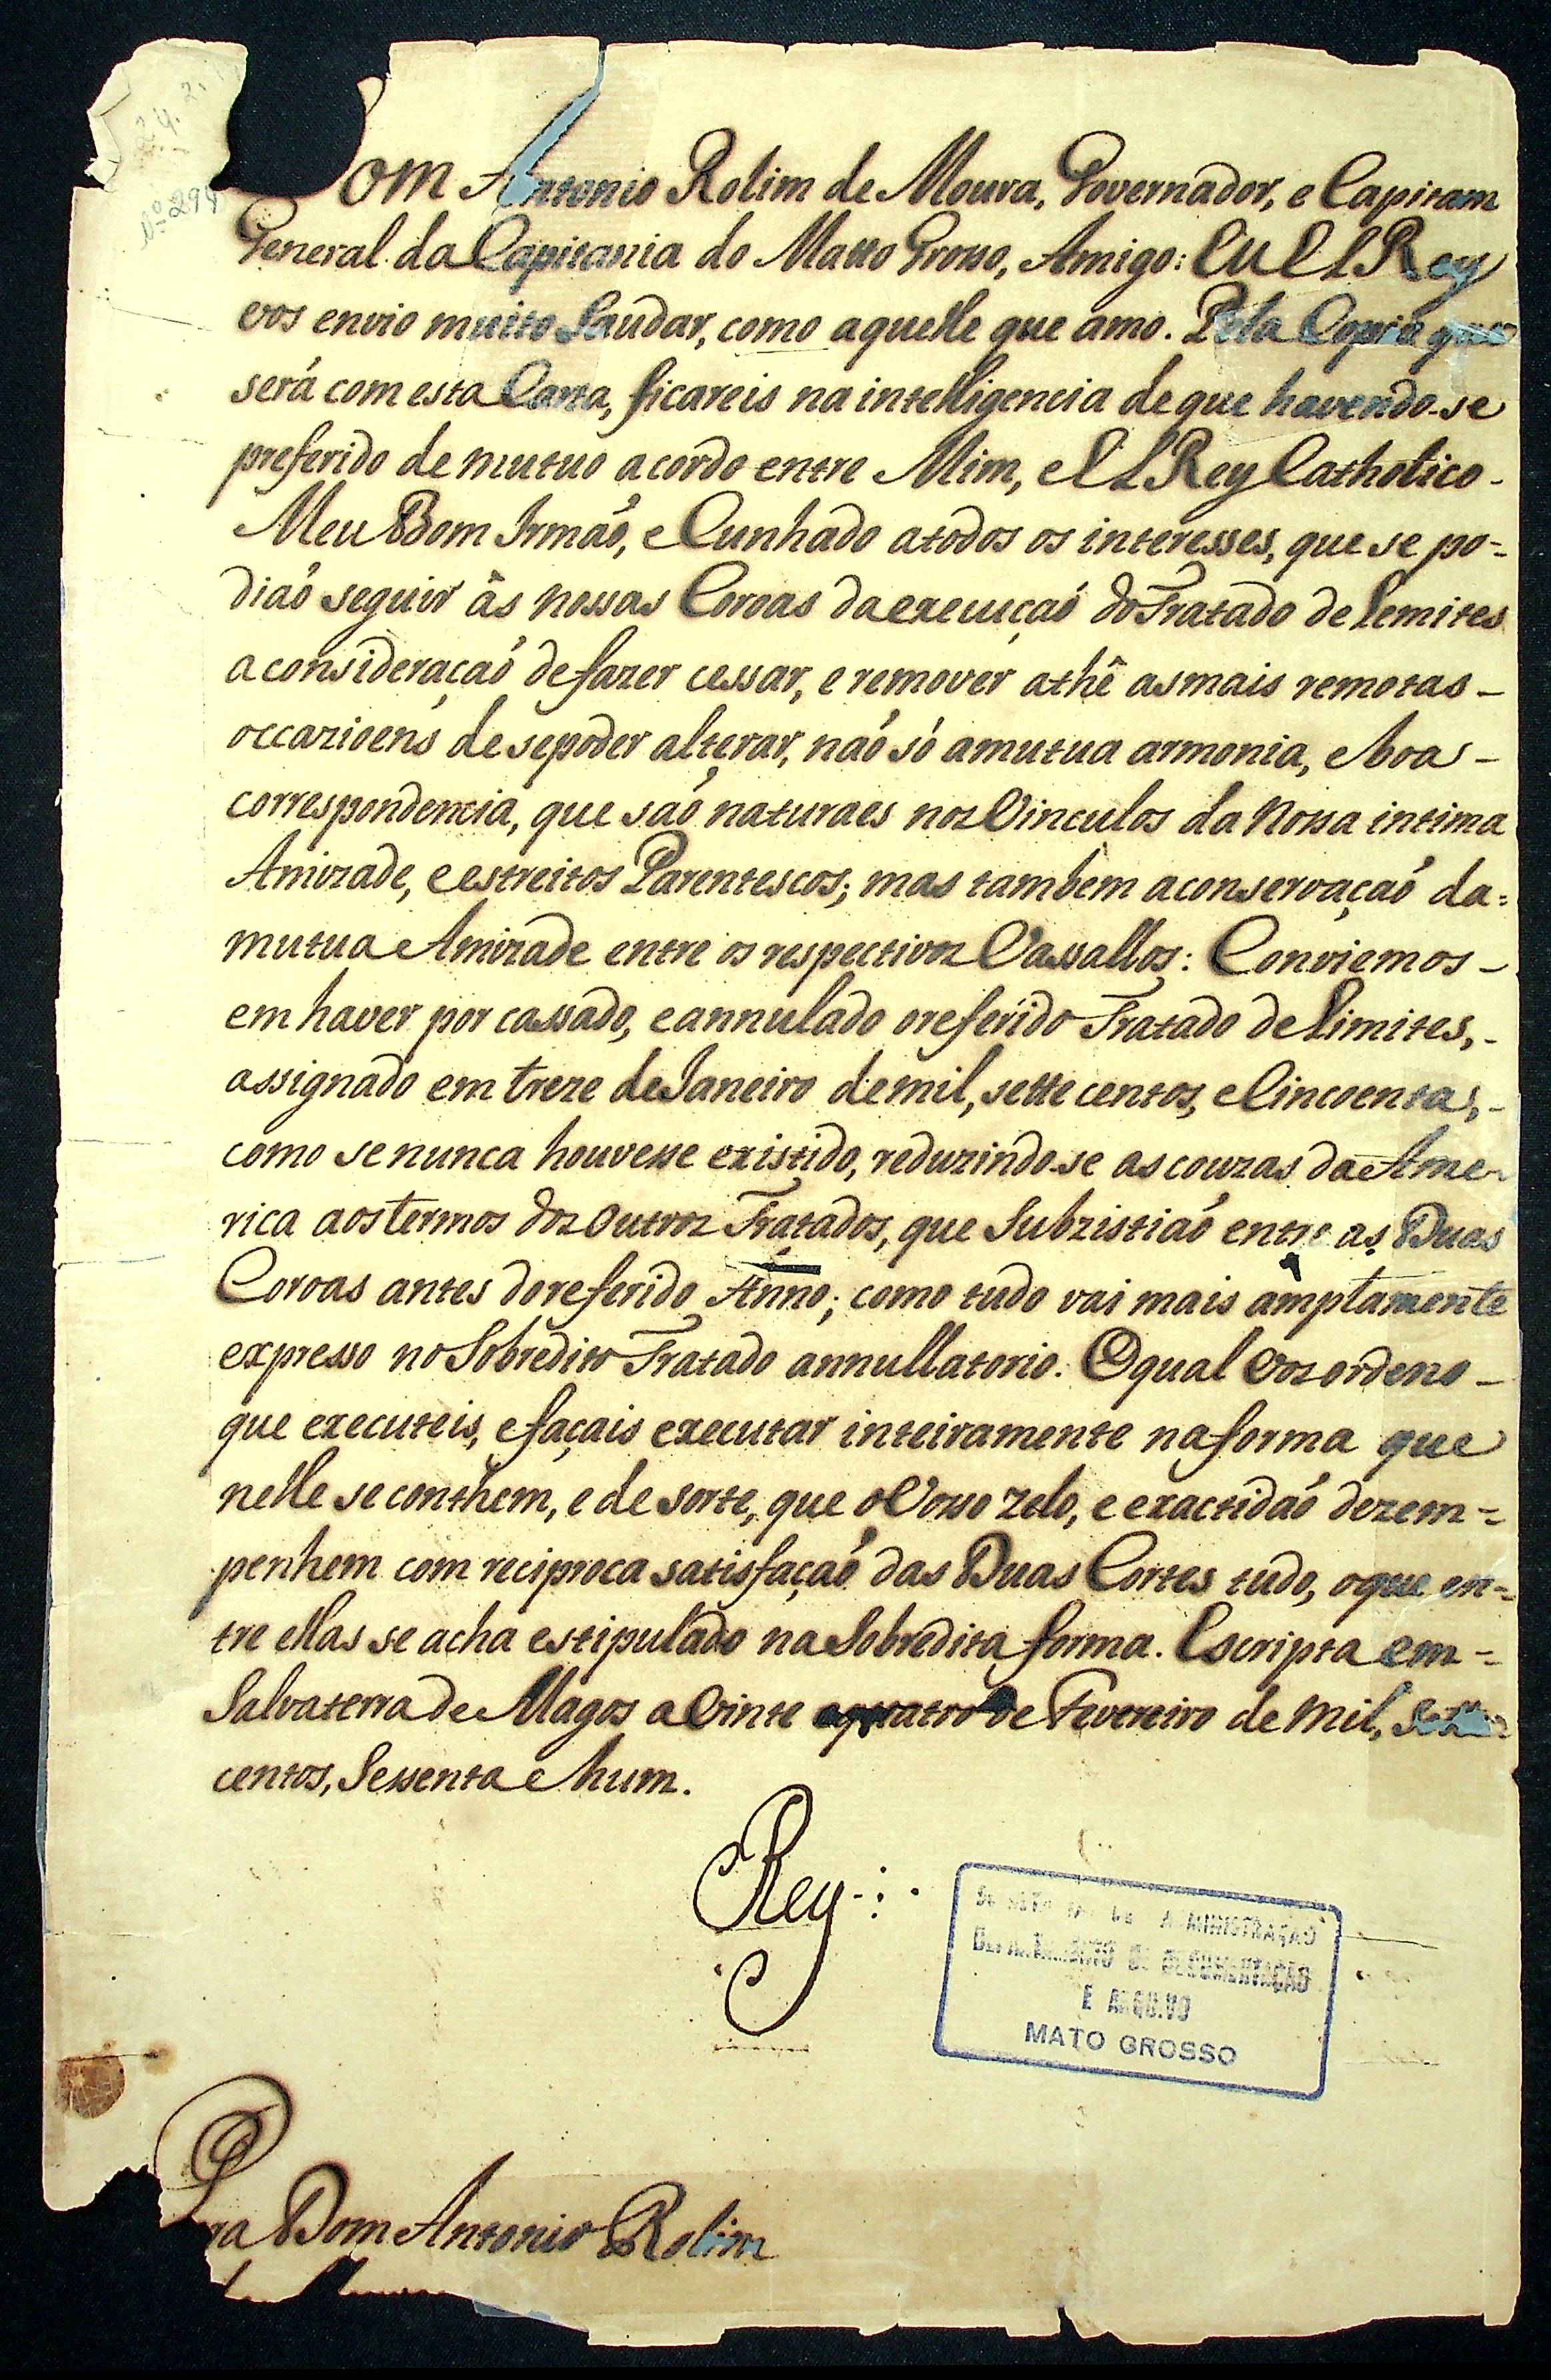 Nº 299
Dom Antonio Rolim de Moura, Governador, e Capitam
General da Capitania do Matto Grosso, Amigo: Eu ElRey
vos envio muito Saudar, como aquelle que amo. Pela Copia que
será com esta Carta, ficareis na intelligencia de que havendo-se
preferido de mutuo acordo entre Mim, e ElRey Catholico-
Meu Bom Irmaõ, e Cunhado a todos os interesses, que se po=
diaõ seguir às nossas Coroas da execuçaõ do Tratado de Lemites
a consideraçaõ de fazer cessar, e remover athê as mais remotas-
occazioens de se poder alterar, naõ só a mutua armonia, e boa-
correspondencia, que saõ naturaes nos Vinculos da Nossa intima
Amizade, e estreitos Parentescos; mas tambem a conservaçaõ da=
mutua Amizade entre os respectivos Vassallos: Conviemos-
em haver por cassado, e annulado o referido Tratado de Limites,-
assignado em treze de Janeiro de mil, sette centos, e Cincoenta,-
como se nunca houvesse existido, reduzindo-se as couzas da Ame-
rica aos termos dos outros Tratados, que Subzistiaõ entre as Duas
Coroas antes do referido Anno; como tudo vai mais amplamente
expresso no Sobredito Tratado annullatorio. O qual Vos ordeno-
que executeis, e façais executar inteiramente na forma que
nelle se conthem, e de sorte, que o Vosso zelo, e exactidaõ dezem=
penhem com reciproca satisfaçaõ das Duas Cortes tudo, o que en=
tre ellas se acha estipulado na Sobredita forma. Escripta em=
Salvaterra de Magos a Vinte e quatro de Fevereiro de mil, Sette
centos, Sessenta e hum.
Rey
ADMINISTRAÇÃO
DEPARTAMENTO DE DOCUMENTAÇÃO
E ARQUIVO
MATO GROSSO
Para Dom Antonio Rolim
de Moura